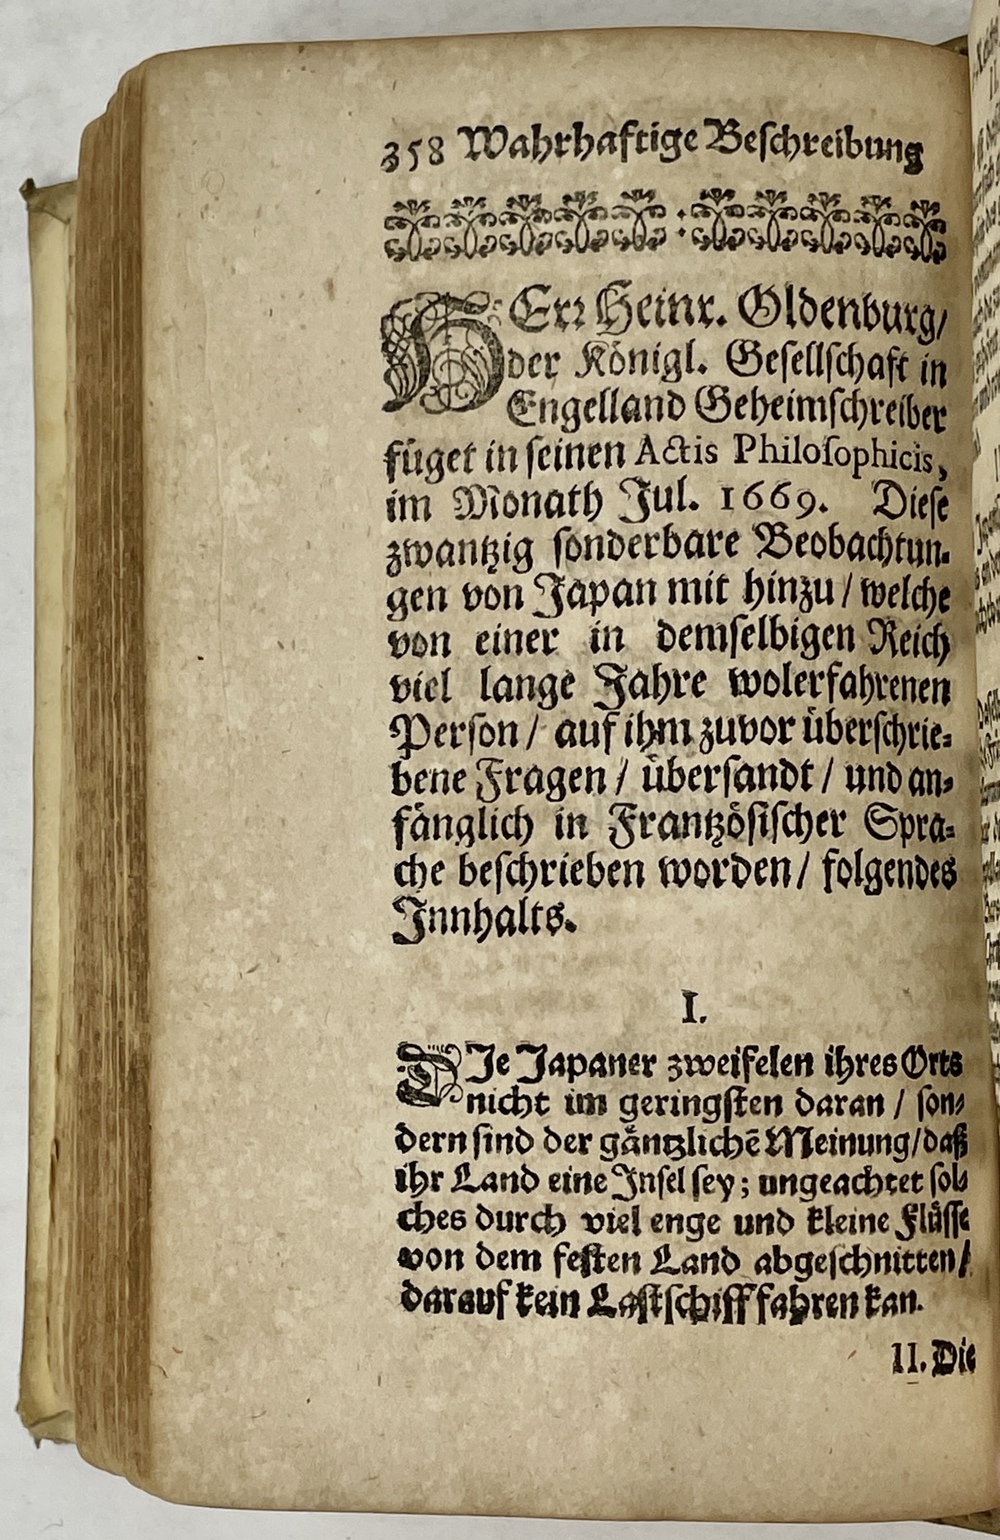 358 Wahrhaftige Beschreibung
HErr Heinr. Oldenburg/
der Königl. Gesellschaft in
Engelland Geheimschreiber
füget in seinen Actis Philosophicis,
im Monath Jul. 1669. Diese
zwantzig sonderbare Beobachtun-
gen von Japan mit hinzu / welche
von einer in demselbigen Reich
viel lange Jahre wolerfahrenen
Person / auf ihm zuvor überschrie-
bene Fragen / übersandt / und an-
fänglich in Frantzösischer Spra-
che beschrieben worden / folgendes
Innhalts.
I.
DIe Japaner zweifelen ihres Orts
nicht im geringsten daran / son-
dern sind der gäntzlichē Meinung/daß
ihr Land eine Insel sey; ungeachtet sol-
ches durch viel enge und kleine Flüsse
von dem festen Land abgeschnitten/
darauf kein Lastschiff fahren kan.
II. Die